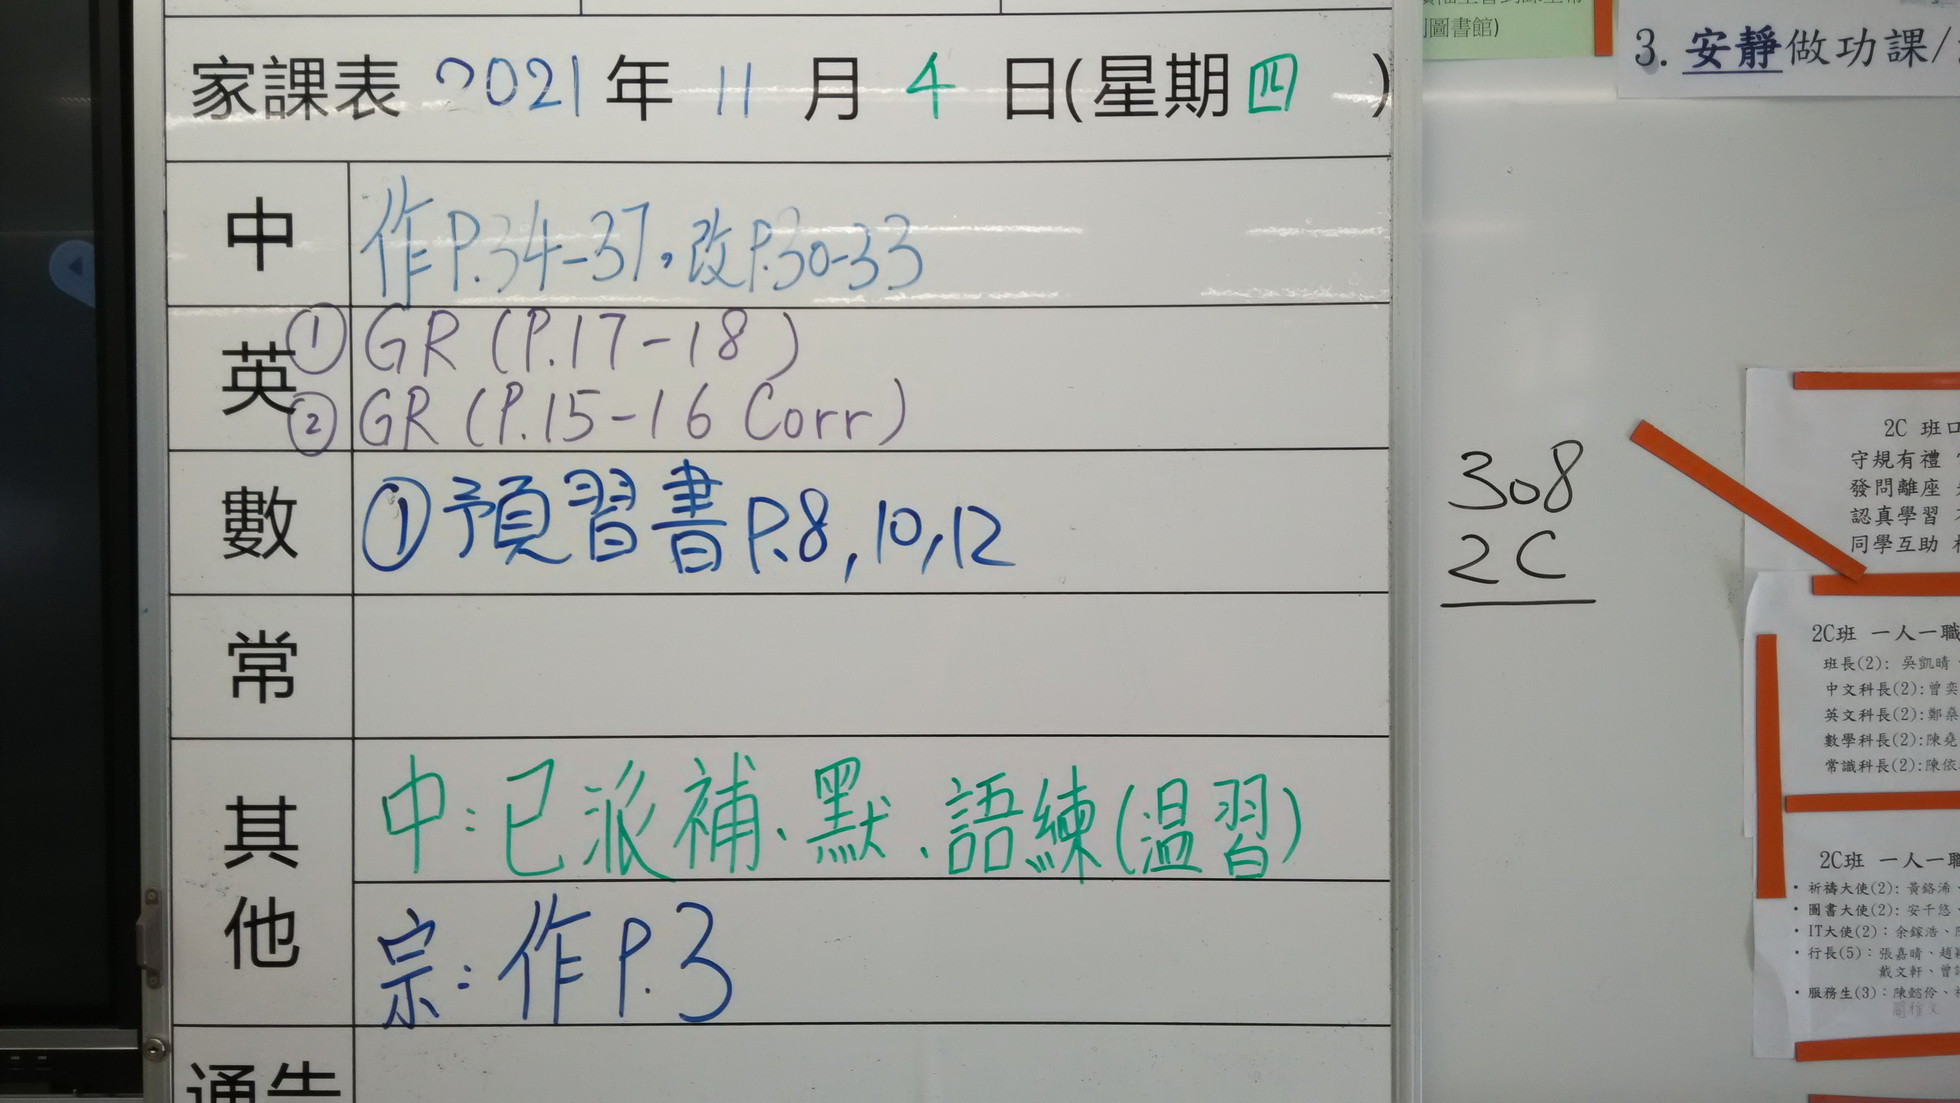 家課表 2021年 11月 4日(星期四)
中 作P.34-37,改P.30-33
英 ① GR (P.17-18)
② GR (P.15-16 Corr)
數 ①預習書P.8,10,12
常
其他 中:已派補、默、語練(温習)
宗:作P.3
通告
308
2C
圖書館)
3. 安靜做功課/
2C 班口
守規有禮
發問離座
認真學習
同學互助
2C班 一人一職
班長(2): 吳凱晴
中文科長(2):曾奕
英文科長(2):鄭燊
數學科長(2):陳堯
常識科長(2):陳依
2C班 一人一職
• 祈禱大使(2): 黃鉻浠、
• 圖書大使(2): 安千悠、
• IT大使(2): 余鎵浩、
• 行長(5): 張嘉晴、趙
戴文軒、曾
• 服務生(3): 陳懿伶、